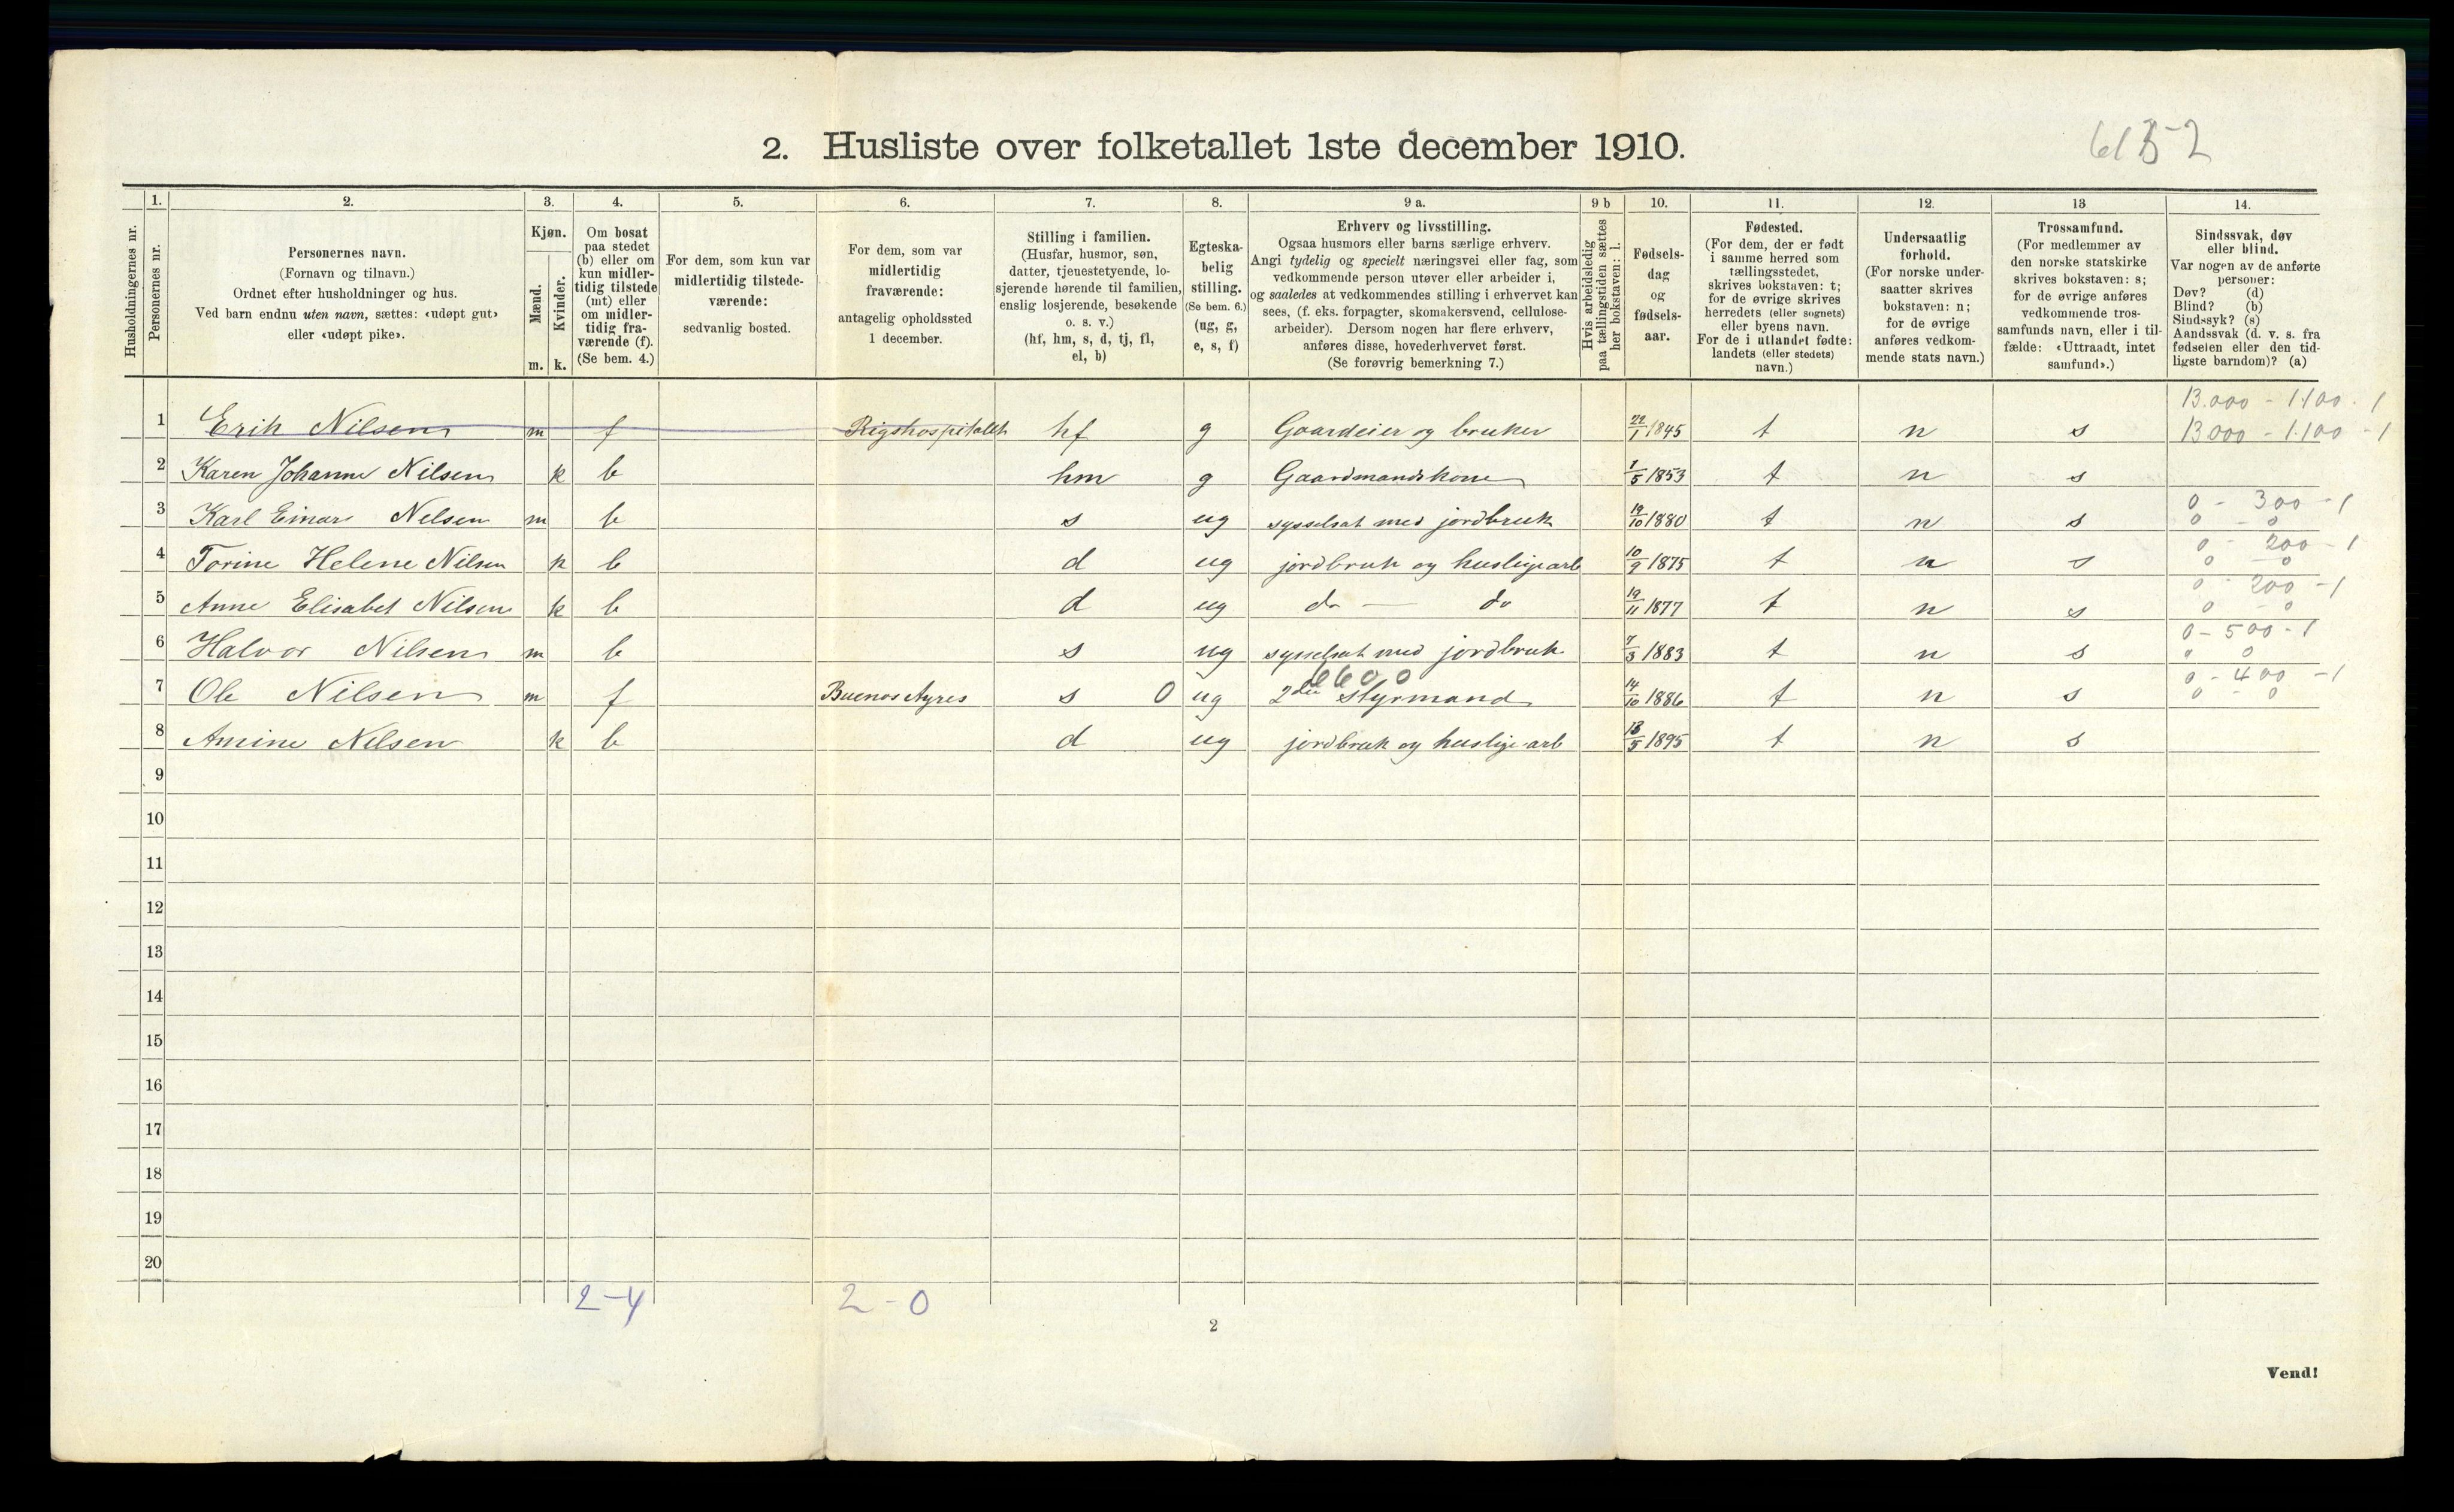 2. Husliste over folketallet 1ste december 1910.
Husholdningernes nr.
1.
Personernes nr.
2.
Personernes navn.
(Fornavn og tilnavn.)
Ordnet efter husholdninger og hus.
Ved barn endnu uten navn, sættes: «udøpt gut»
eller «udøpt pike».
3.
Kjøn.
Mænd.
Kvinder.
m. k.
4.
Om bosat
paa stedet
(b) eller om
kun midler-
tidig tilstede
(mt) eller
om midler-
tidig fra-
værende (f).
(Se bem. 4.)
5.
For dem, som kun var
midlertidig tilstede-
værende:
sedvanlig bosted.
6.
For dem, som var
midlertidig
fraværende:
antagelig opholdssted
1 december.
7.
Stilling i familien.
(Husfar, husmor, søn,
datter, tjenestetyende, lo-
sjerende hørende til familien,
enslig losjerende, besøkende
o. s. v.)
(hf, hm, s, d, tj, fl,
el, b)
8.
Egteska-
belig
stilling.
(Se bem. 6.)
(ug, g,
e, s, f)
9 a.
Erhverv og livsstilling.
Ogsaa husmors eller barns særlige erhverv.
Angi tydelig og specielt næringsvei eller fag, som
vedkommende person utøver eller arbeider i,
og saaledes at vedkommendes stilling i erhvervet kan
sees, (f. eks. forpagter, skomakersvend, cellulose-
arbeider). Dersom nogen har flere erhverv,
anføres disse, hovederhvervet først.
(Se forøvrig bemerkning 7.)
9 b
Hvis arbeidsledig
paa tællingstiden sættes
her bokstaven: l.
10.
Fødsels-
dag
og
fødsels-
aar.
11.
Fødested.
(For dem, der er født
i samme herred som
tællingsstedet,
skrives bokstaven: t;
for de øvrige skrives
herredets (eller sognets)
eller byens navn.
For de i utlandet fødte:
landets (eller stedets)
navn.)
12.
Undersaatlig
forhold.
(For norske under-
saatter skrives
bokstaven: n;
for de øvrige
anføres vedkom-
mende stats navn.)
13
Trossamfund.
(For medlemmer av
den norske statskirke
skrives bokstaven: s;
for de øvrige anføres
vedkommende tros-
samfunds navn, eller i til-
fælde: «Uttraadt, intet
samfund».)
14.
Sindssvak, døv
eller blind.
Var nogen av de anførte
personer:
Døv? (d)
Blind? (b)
Sindssyk? (s)
Aandssvak (d. v. s. fra
fødselen eller den tid-
ligste barndom)? (a)
13.000 - 1.100 - 1
1 Erik Nilsen m f Rigshospitalet hf g Gaardeier og bruker 22/1 1845 t n s 13000 - 1.100 - 1
2 Karen Johanne Nilsen k b hm g Gaardmandskone 1/5 1853 t n s
0 - 300 - 1
3 Karl Einar Nilsen m b s ug sysselsat med jordbruk 19/10 1880 t n s 0 - 0
0 - 200 - 1
4 Torine Helene Nilsen k b d ug jordbruk og husligearb 10/9 1875 t n s 0 - 0
0 - 200 - 1
5 Anne Elisabet Nilsen k b d ug do — do 19/11 1877 t n s 0 - 0
0 - 500 - 1
6 Halvor Nilsen m b s ug sysselsat med jordbruk 7/3 1883 t n s 0 0
6600 0 - 400 - 1
7 Ole Nilsen m f Buenos Ayres s 0 ug 2den Styrmand 14/10 1886 t n s 0 - 0
8 Amine Nilsen k b d ug jordbruk og huslige arb 13/5 1895 t n s
9
10
11
12
13
14
15
16
17
18
19
20
2-4 2-0
2
Vend!